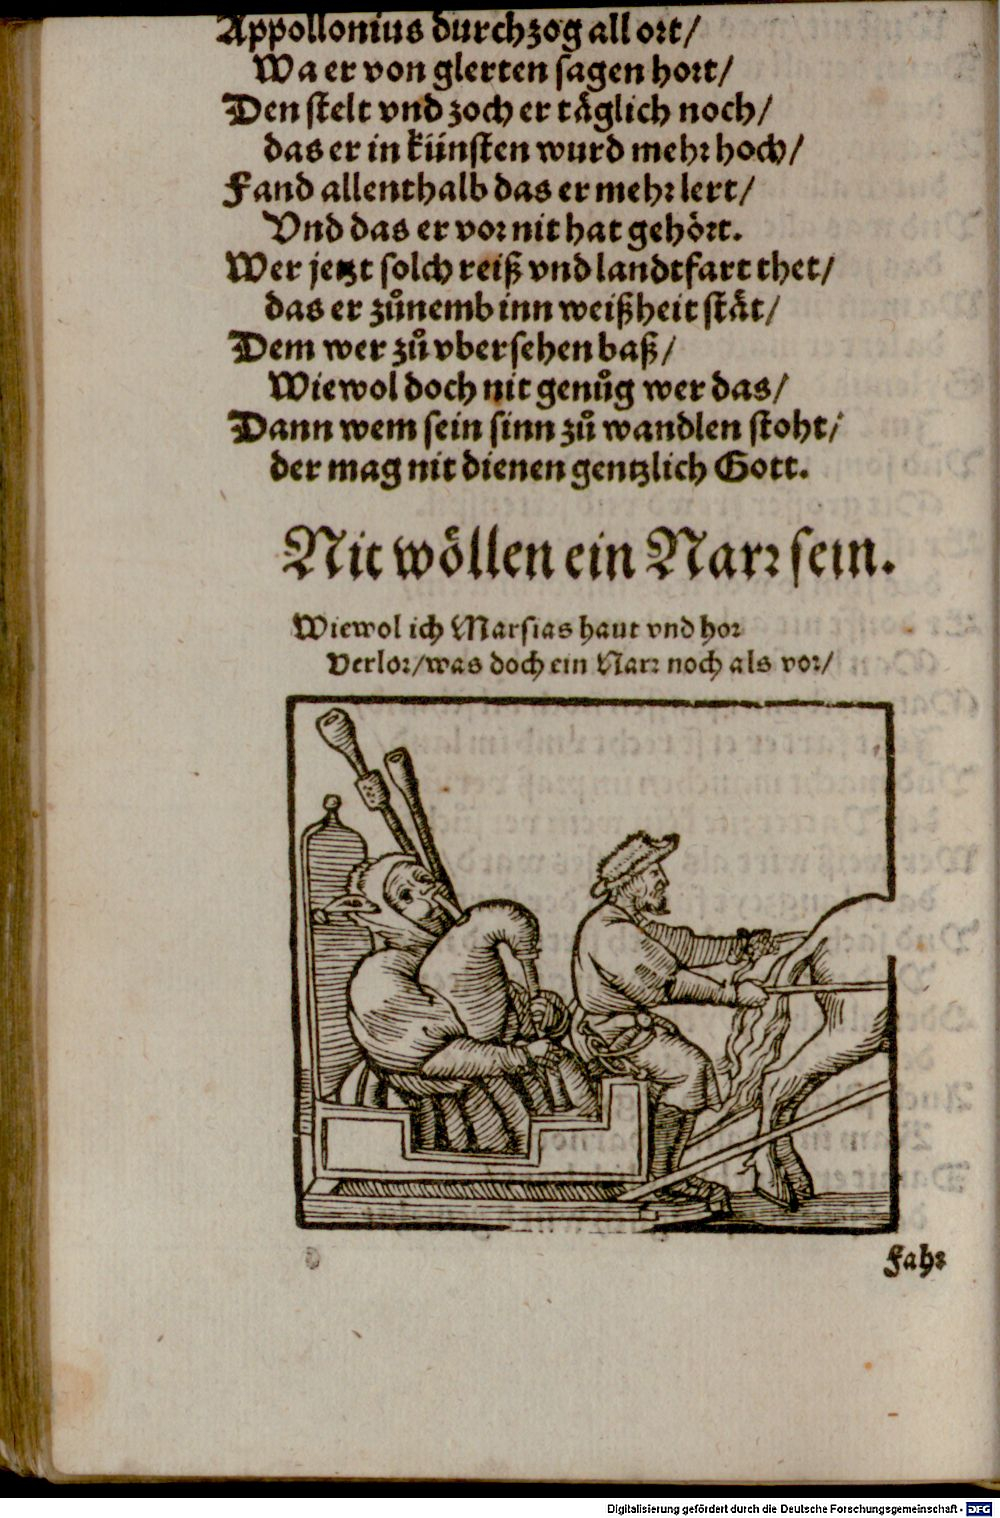 Appollonius durchzog all ort/
Wa er von glerten sagen hort/
Den stelt vnd zoch er täglich noch/
das er in künsten wurd mehr hoch/
Fand allenthalb das er mehr lert/
Vnd das er vor nit hat gehört.
Wer jetzt solch reiß vnd landtfart thet/
das er zůnemb inn weißheit stät/
Dem wer zů vbersehen baß/
Wiewol doch nit genůg wer das/
Dann wem sein sinn zů wandlen stoht/
der mag nit dienen gentzlich Gott.
Nit wöllen ein Narr sein.
Wiewol ich Marsias haut vnd hor
Verlor/was doch ein Narr noch als vor/
Fahr
Digitalisierung gefördert durch die Deutsche Forschungsgemeinschaft - DFG